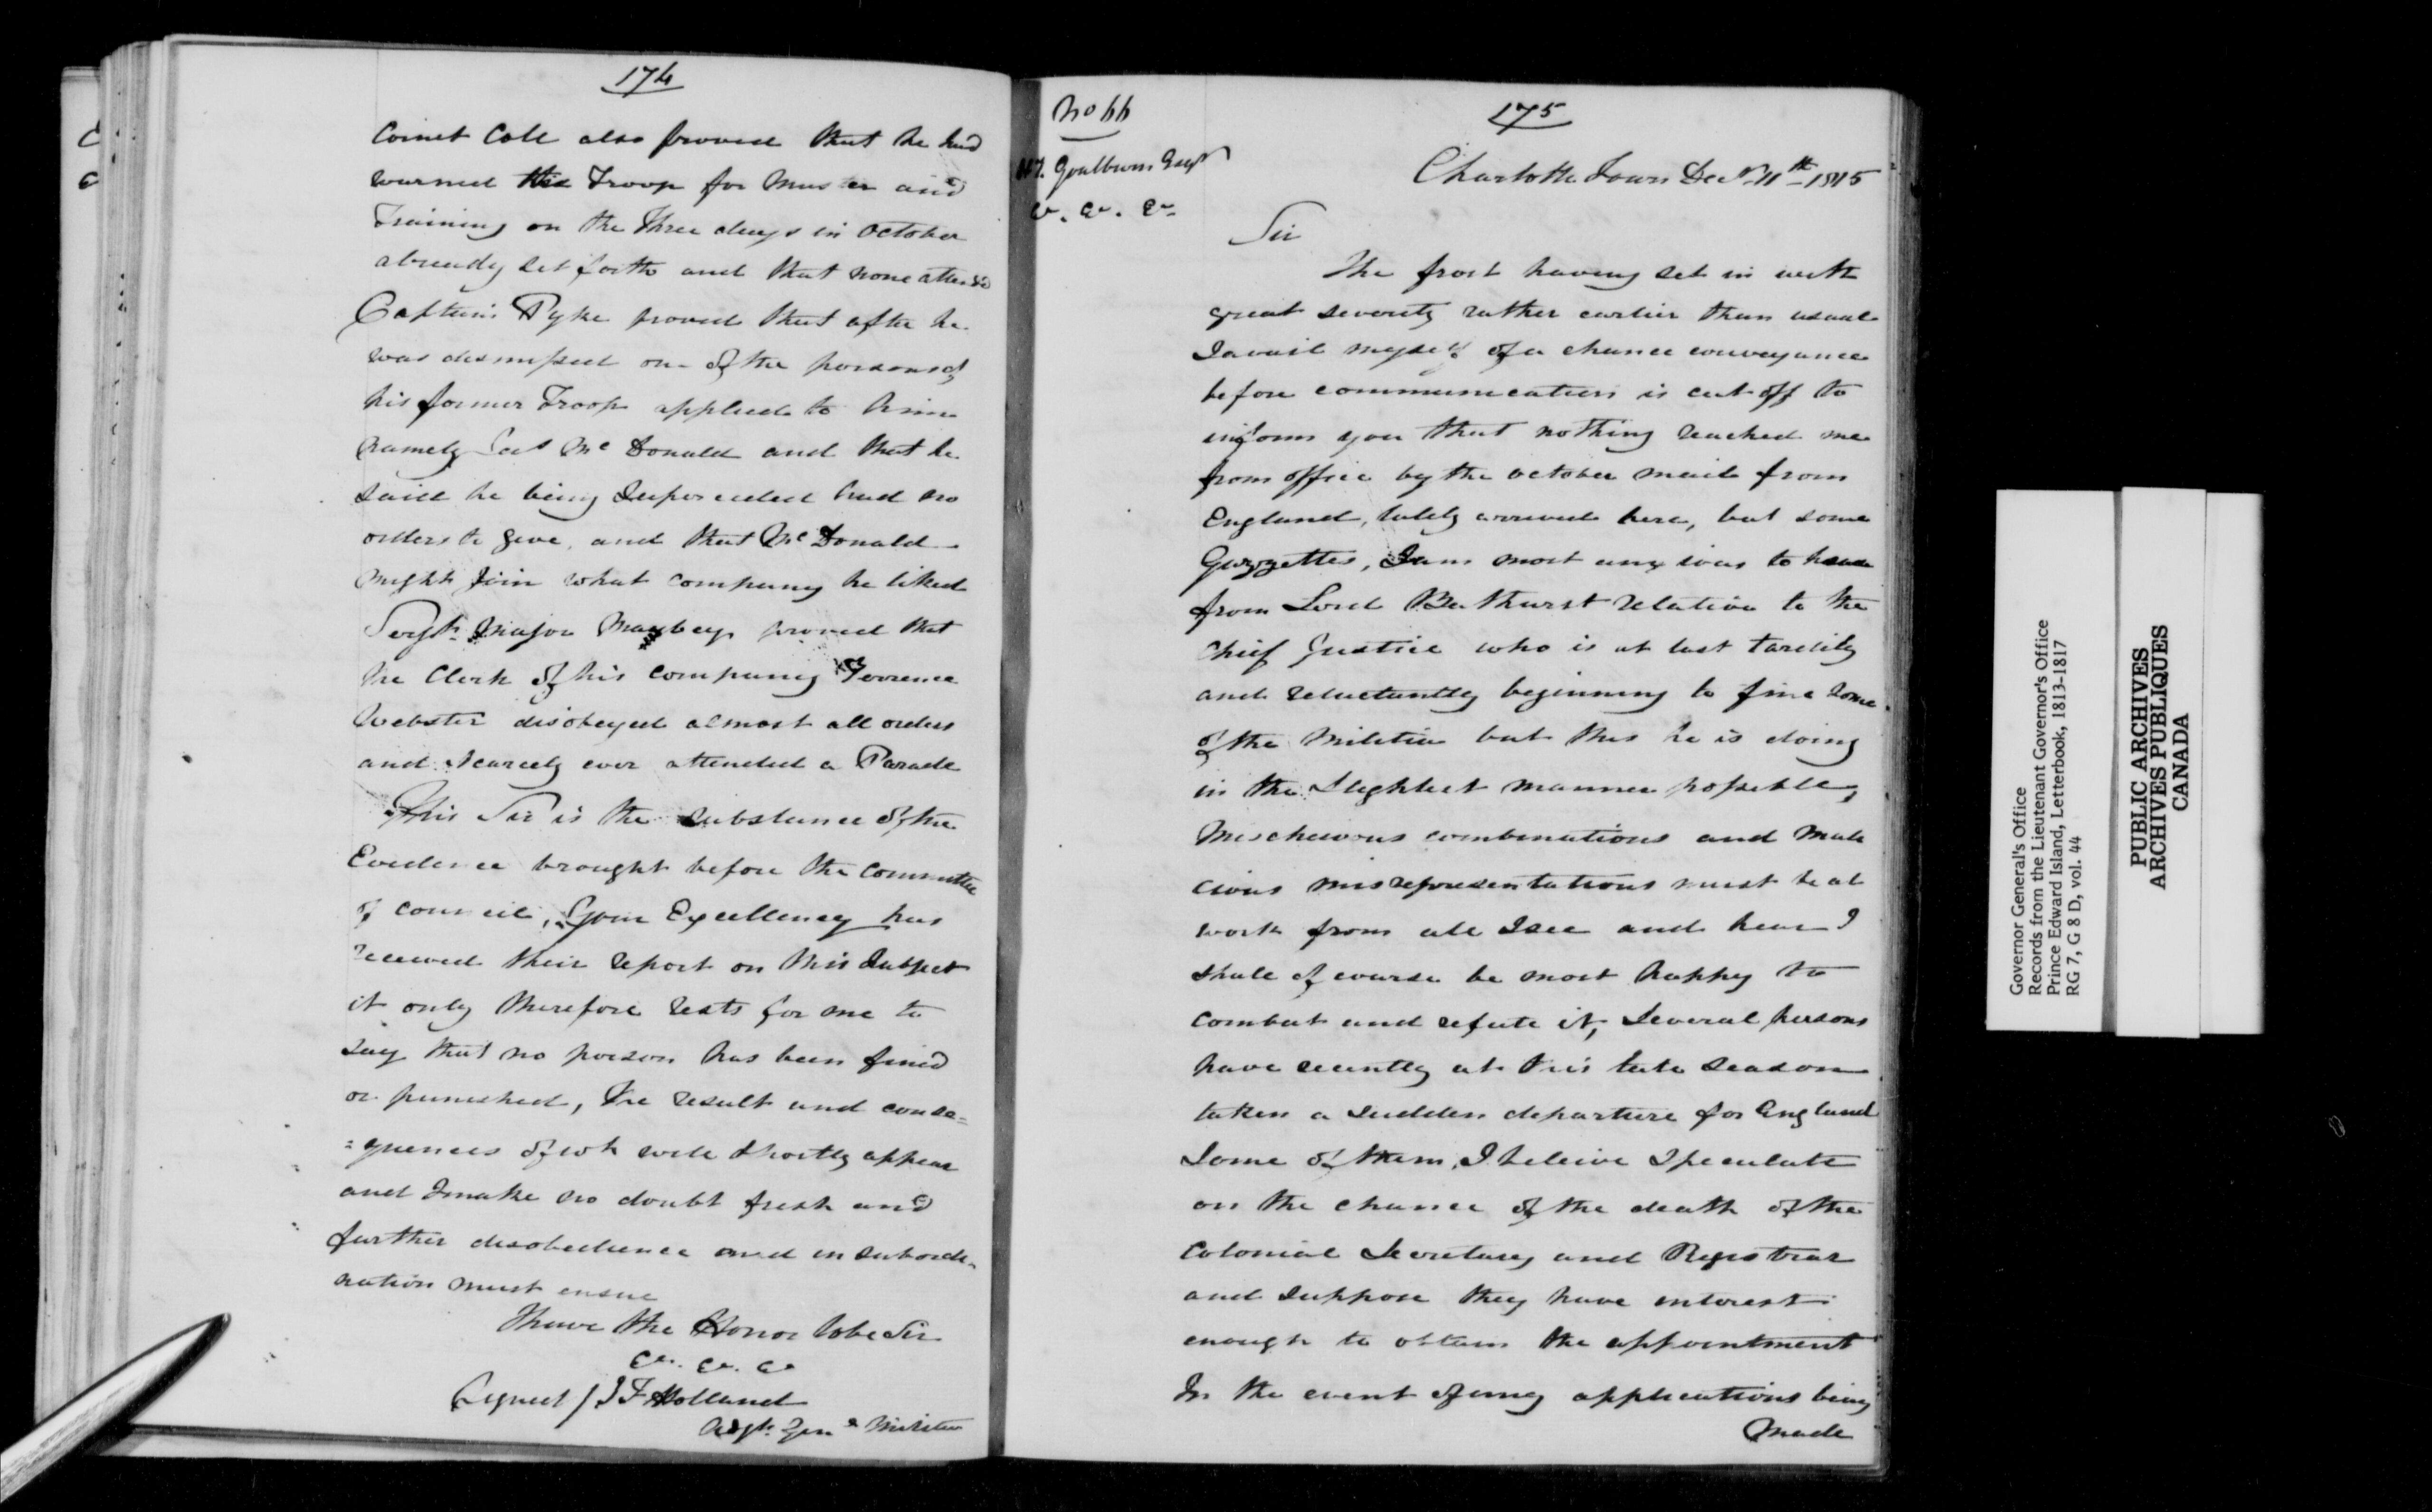 174
Cornet Cole also proved that he had
warned the Troop for Muster and
Training on the Three days in October
already set forth and that none attend'd
Captain Pyke proved that after he
was dismissed one of the persons of
his former Troop applied to him
namely McDonald and that he
said he being Superceded had no
orders to give, and that McDonald
might join what company he liked
Sergt. Major Maybey proved that
the Clerk of his company Torrence
Webster disobeyed almost all orders
and scarcely ever attended a Parade
This Sir is the substance of the
Evidence brought before the Committee
of Council, Your Excellency has
received their report on this subject
it only therefore rests for me to
say that no person has been fined
or punished, the result and conse=
=quences of wh will shortly appear
and I make no doubt fresh and
further disobedience and insubordi-
nation must ensue
I have the Honor to be Sir
&c. &c. &c
Signed / J F Holland
Adjt. Genl Militia
No 66
Hy. Goulburn Esqr
&c. &c. &c
175
Charlotte Town Decr 11th 1815
Sir
The frost having set in with
great severity rather earlier than usual
I avail myself of a chance conveyance
before communication is cut off to
inform you that nothing reached me
from office by the October mail from
England, lately arrived here, but some
Gazzettes, I am most anxious to hear
from Lord Bathurst relative to the
Chief Justice who is at last tardily
and reluctantly beginning to fine some
of the Militia but this he is doing
in the slightest manner possible,
Mischevous combinations and mali
cious misrepresentations must be at
work from all I see and hear I
shall of course be most happy to
combat and refute it, Several persons
have recently at this late season
taken a sudden departure for England
Some of them, I beleive speculate
on the chance of the death of the
Colonial Secretary and Registrar
and suppose they have interest
enough to obtain the appointment
In the event of any applications being
Made
Governor General's Office
Records from the Lieutenant Governor's Office
Prince Edward Island, Letterbook, 1813-1817
RG 7, G 8 D, vol. 44
PUBLIC ARCHIVES
ARCHIVES PUBLIQUES
CANADA